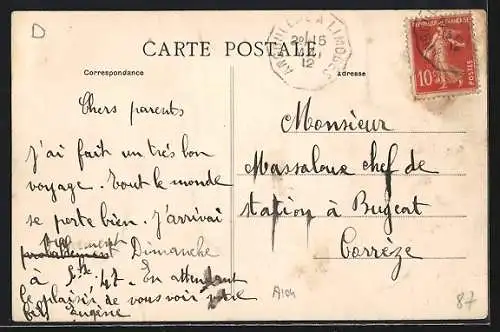 D
CARTE POSTALE
Correspondance
Adresse
LIMOGES
20-15
12
REPUBLIQUE FRANÇAISE
10
POSTES
Chers parents
J'ai fait un très bon
voyage. Tout le monde
se porte bien. J'arrivai
Dimanche
à 5h 47. En attendant
le plaisir de vous voir votre
fils Eugène
Monsieur
Massaloux chef de
station à Bugeat
Corrèze
A104
87